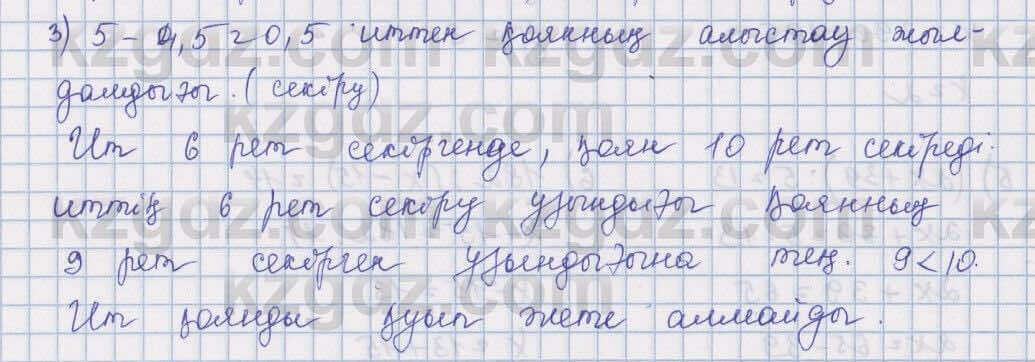 3) 5 - 4,5 = 0,5 иттен қоянның алыстау жыл-
дамдығы. (секіру)
Ит 6 рет секіргенде, қоян 10 рет секіреді.
иттің 6 рет секіру ұзындығы қоянның
9 рет секірген ұзындығына тең. 9 < 10.
Ит қоянды қуып жете алмайды.